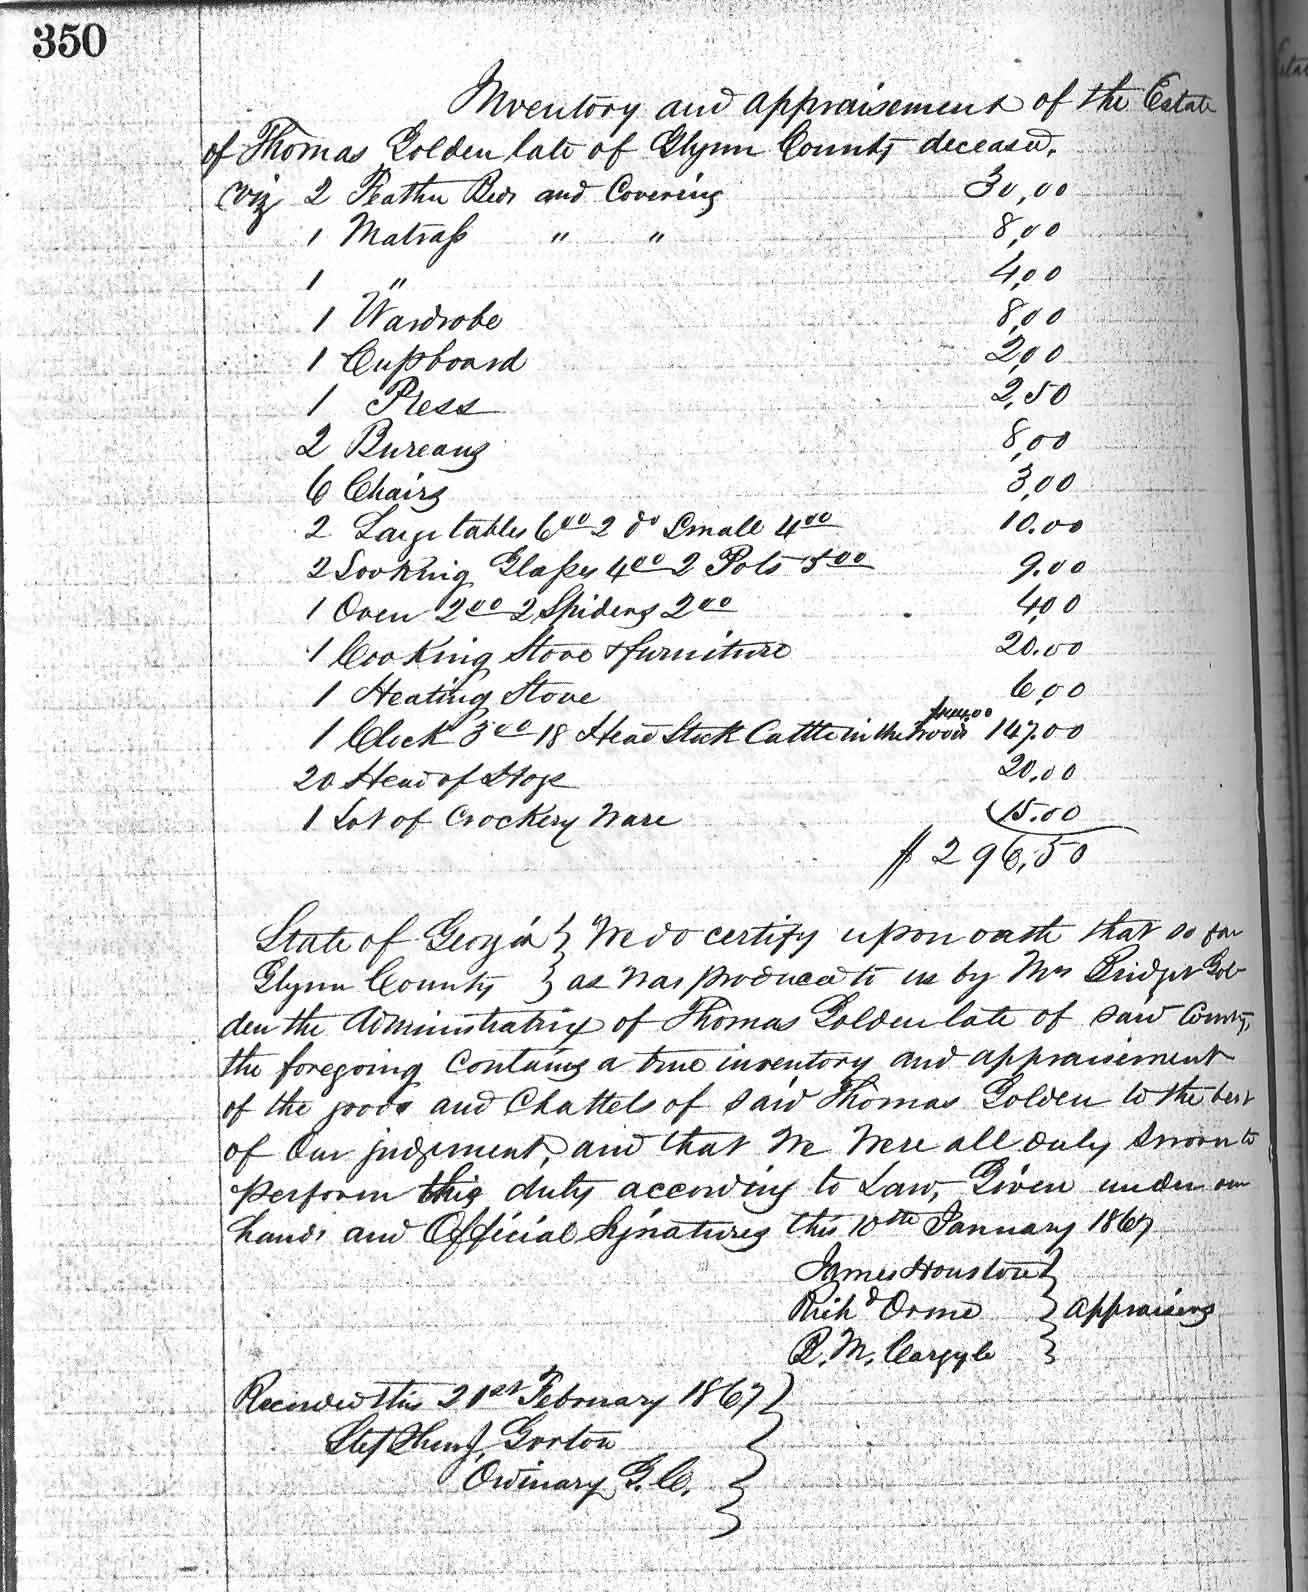 350
Inventory and appraisement of the Estate
of Thomas Golden late of Glynn County deceased.
viz 2 Feather Beds and Covering 30,00
1 Matrass " " 8,00
1 " 4,00
1 Wardrobe 8,00
1 Cupboard 2,00
1 Press 2,50
2 Bureaus 8,00
6 Chairs 3,00
2 Large tables 6.00 2 do Small 4.00 10.00
2 Looking Glasses 4.00 2 Pots 5.00 9.00
1 Oven 2.00 2 Spiders 2.00 4,00
1 Cooking Stove & furniture 20.00
1 Heating Stove 6,00
1 Clock 3.00 18 Head Stock Cattle in the woods 144.00 147.00
20 Head of Hogs 20.00
1 Lot of Crockery Ware 15.00
$296,50
State of Georgia } We do certify upon oath that so far
Glynn County } as was produced to us by Mrs Bridget Gol-
den the Administratrix of Thomas Golden late of said County,
the foregoing contains a true inventory and appraisement
of the goods and Chattels of said Thomas Golden to the best
of Our judgement, and that we were all duly sworn to
perform this duty according to Law, Given under our
hands and Official Signatures this 10th January 1867
James Houston }
Richd Orme } appraisers
R. M. Cargyle }
Recorded this 21st February 1867 }
Stephen J. Gorton
Ordinary G. C.